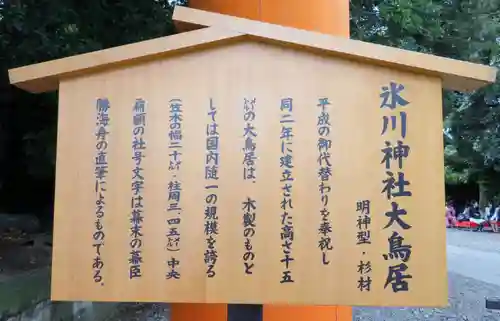 氷川神社大鳥居
明神型・杉材
平成の御代替わりを奉祝し
同二年に建立された高さ十五
㍍の大鳥居は、木製のものと
しては国内随一の規模を誇る
(笠木の幅二十㍍・柱周三.四五㍍)中央
扁額の社号文字は幕末の幕臣
勝海舟の直筆によるものである。